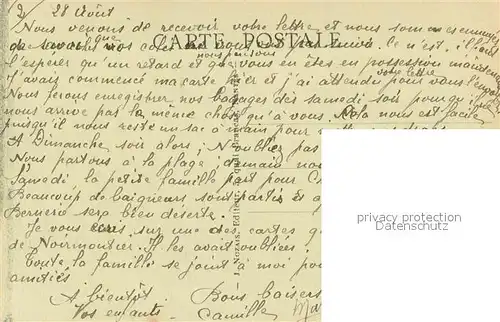 2/ 28 Août
Nous venons de recevoir votre lettre et nous sommes ennuyés
de savoir que vos colis ne vous sont pas arrivés. Ce n'est, il faut
CARTE POSTALE
l'espérer qu'un retard et que vous en êtes en possession maintenant
J'avais commencé ma carte hier et j'ai attendu votre lettre pour vous l'envoyer
Nous ferons enregistrer nos bagages dès samedi soir pour qu'il
nous arrive pas la même chose qu'à vous. Cela nous est facile
puisqu'il nous reste un sac à main pour
A Dimanche soir alors, N'oubliez pas
Nous partons à la plage, demain
Samedi la petite famille part pour
Beaucoup de baigneurs sont partis et
Bernerie sera bien deserte.
Je vous écris sur une des cartes
de Noirmoutier. Il les avait oubliées.
Toute la famille se joint à moi pour
amitiés
A bientôt Bons baisers
Vos enfants Camille
privacy protection
Datenschutz